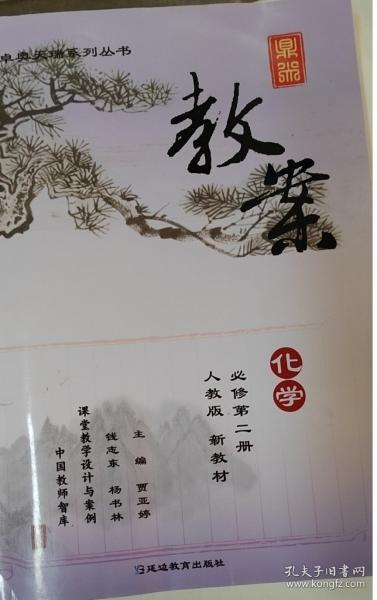 卓奥天瑞系列丛书
鼎尖
教案
化学
必修第二册
人教版 新教材
主编 贾亚婷
钱志东 杨书林
课堂教学设计与案例
中国教师智库
延边教育出版社
孔夫子旧书网